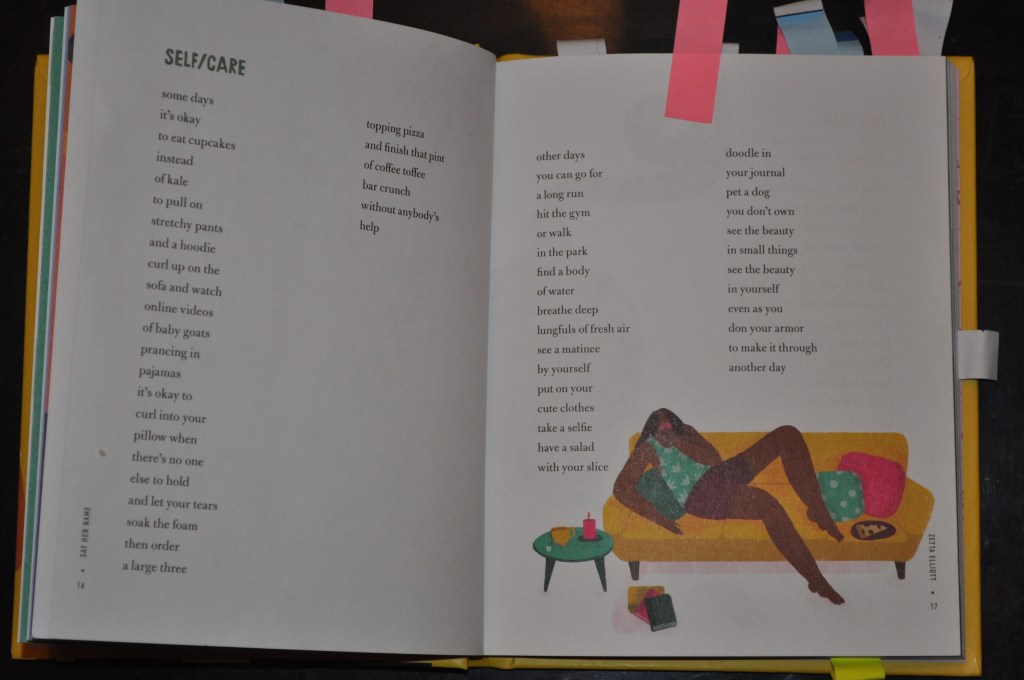 SELF/CARE
some days
it's okay
to eat cupcakes
instead
of kale
to pull on
stretchy pants
and a hoodie
curl up on the
sofa and watch
online videos
of baby goats
prancing in
pajamas
it's okay to
curl into your
pillow when
there's no one
else to hold
and let your tears
soak the foam
then order
a large three
topping pizza
and finish that pint
of coffee toffee
bar crunch
without anybody's
help
SAY HER NAME
16
other days
you can go for
a long run
hit the gym
or walk
in the park
find a body
of water
breathe deep
lungfuls of fresh air
see a matinee
by yourself
put on your
cute clothes
take a selfie
have a salad
with your slice
doodle in
your journal
pet a dog
you don't own
see the beauty
in small things
see the beauty
in yourself
even as you
don your armor
to make it through
another day
ZETTA ELLIOTT
17